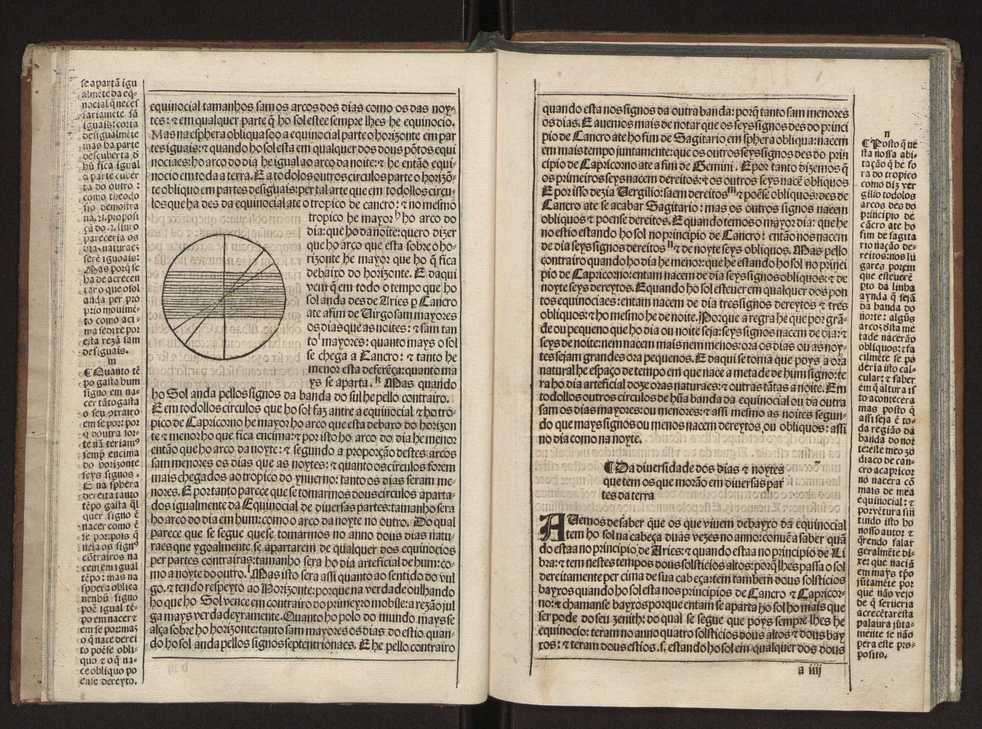 se apartã igu
almēte da eq̃
nocial q̃ neces
sariamēte sã
iguais: corta
desigualmēte
mas ha parte
descuberta d
hũ fica igual
a parte cuber
ta do outro :
como theodo
sio demostra
na. 2. proposi
ção do. 2. liuo
pareceria os
dias naturaes
serē iguoais:
Mas porq̃ se
ha de acrecen
taro que o sol
anda per pro
prio mouimē
to como aci-
ma se dise por
esta rezã sam
desiguais.
m
¶ Quanto tē
po gasta hum
signo em na-
cer tãto gasta
o seu dereito
em se por: por
q̃ doutra sor-
te nã teriamˢ
semp̃ encima
do horizonte
seys signos.
E na sphera
dereita tanto
tēpo gasta q̃l
quer signo ē
nacer como ē
se por: pois q̃
neia os signˢ
cõtrairos na
cem em igual
tēpo: mas na
sphera oblica
nenhũ signo
poē igual tē-
po em nacer e
em se por: mas
o q̃ nace derei
to põese obli-
quo e o q̃ na-
ce obliquo po
ense dereyto.
equinocial tamanhos sam os arcos dos dias como os das noy-
tes: ⁊ em qualquer parte q̃ ho sol este sempre lhes he equinocio.
Mas na esphera obliqua soo a equinocial parte o horizonte em par
tes iguais: ⁊ quando ho sol esta em qualquer dos dous põtos equi
nociaes: ho arco do dia he igual ao arco da noite: ⁊ he então equi-
nocio em toda a terra. E a todolos outros circulos parte o horizõ-
te obliquo em partes desiguaes: per tal arte que em todollos circu-
los que ha des da equinocial ate o tropico de cancro: ⁊ no mesmo
tropico he mayor ho arco do
dia: que ho da noite: quero dizer
que ho arco que esta sobre o ho-
rizonte he mayor que ho q̃ fica
debaixo do horizonte. E daqui
vem q̃ em todo o tempo que ho
sol anda des de Aries p̱ Cancro
ate a fim de Virgo sam mayores
os dias que as noites: ⁊ sam tan
to mayores: quanto mays o sol
se chega a Cancro: ⁊ tanto he
menor esta deferēça: quanto ma
ys se aparta. Mas quando
ho Sol anda pellos signos da banda do sul he pello contrairo.
E em todollos circulos que ho sol faz antre a equinocial ⁊ ho tro-
pico de Capricorno he mayor ho arco que esta debaxo do horizon
te ⁊ menor ho que fica encima: ⁊ por isto ho arco do dia he menor
então que ho arco da noyte: ⁊ segundo a proporção destes arcos
sam menores os dias que as noytes: ⁊ quanto os circulos forem
mais chegados ao tropico do ynuerno: tanto os dias seram me-
nores. E portanto parece que se tomarmos dous circulos aparta-
dos igualmente da Equinocial de diuersas partes: tamanho sera
ho arco do dia em hum: como o arco da noyte no outro. Do qual
parece que se segue que se tomarmos no anno dous dias natu-
raes que ygoalmente se apartarem de qualquer dos equinocios
per partes contrairas: tamanho sera ho dia arteficial de hum: co-
mo a noyte do outro. Mas isto sera assi quanto ao sentido do vul
go, ⁊ tendo respeyto ao Horizonte: porque na verdade oulhando
ho que ho Sol vence em contrairo do primeyro mobile: a rezão jul
ga mays verdadeyramente. Quanto ho polo do mundo mays se
alça sobre ho horizonte: tanto sam mayores os dias do estio quan-
do ho sol anda pellos signos septentrionaes. E he pello contrairo
quando esta nos signos da outra banda: porq̃ tanto sam menores
os dias. E auemos mais de notar que os seys signos des do princi
pio de Cancro ate ho fim de Sagitario em sphera obliqua: nacem
em mais tempo juntamente: que os outros seys signos des do prin
cipio de Capricorno ate a fim de Gemini. E por tanto dizemos q̃
os primeiros seys nacem dereitos: ⁊ os outros seys nacē obliquos
E por isso dezia Vergilio: saem dereitos ⁊ põese obliquos: des de
Cancro ate se acabar Sagitario: mas os outros signos nacem
obliquos ⁊ poense dereitos. E quando temos o mayor dia: que he
no estio estando ho sol no principio de Cancro: entam nos nacem
de dia seys signos dereitos ⁊ de noyte seys obliquos. Mas pello
contrairo quando ho dia he menor: que he estando ho sol no princi
pio de Capricorno: entam nacem de dia seys signos obliquos: ⁊ de
noyte seys dereytos. E quando ho sol esteuer em qualquer dos pon
tos equinociaes: entam nacem de dia tres signos dereytos ⁊ tres
obliquos: ⁊ ho mesmo he de noite. Porque a regra he que por grã-
de ou pequeno que ho dia ou noite seja: seys signos nacem de dia: ⁊
seys de noite: nem nacem mais nem menos: ora os dias ou as noy-
tes sejam grandes ora pequenos. E daqui se torna que poys a ora
natural he espaço de tempo em que nace a metade de hum signo: te
ra ho dia arteficial doze oras naturaes: ⁊ outras tãtas a noite. Em
todollos outros circulos de hũa banda da equinocial ou da outra
sam os dias mayores: ou menores: ⁊ assi mesmo as noites segun-
do que mays signos ou menos nacem dereytos, ou obliquos: assi
no dia como na noyte.
¶ Da diuersidade dos dias ⁊ noytes
que tem os que morão em diuersas par
tes da terra
AVemos de saber que os que viuem debayxo da equinocial
tem ho sol na cabeça duas vezes no anno: conuē a saber quã
do estaa no principio de Aries: ⁊ quando estaa no principio de Li
bra: ⁊ tem nestes tempos dous solsticios altos: porq̃ lhes passa o sol
dereitamente per cima de sua cabeça: tem tambem dous solsticios
bayxos quando ho sol esta nos principios de Cancro ⁊ Capricor-
no: ⁊ chamanse bayxos porque entam se aparta ho sol ho mais que
ser pode do seu zenith: do qual se segue que poys sempre lhes he
equinocio: teram no anno quatro solsticios dous altos ⁊ dous bay
xos: ⁊ teram dous estios. s. estando ho sol em qualquer dos dous
a iiij
n
¶ Posto q̃ ne
sta nossa abi-
tação q̃ he fo
ra do tropico
como diz ver
gilio todolos
arcos des do
principio de
cãcro ate ho
fim de sagita
rio nação de-
reitos: nos lu
gares porem
que esteuerē
pto da linha
aynda q̃ sejã
da banda do
norte: algũs
arcos desta me
tade nacerão
obliquos: e fa
cilmēte se po
deria isto cal-
cular: e saber
em q̃ altura is
to aconteceria
mas posto q̃
assi seja ē to-
da região da
banda do nor
te este meo zo
diaco de can-
cro a capricor
no nacera cõ
mais de mea
equinocial: e
por vētura sin
tindo isto ho
nosso autor e
q̃rendo falar
geralmēte di-
ze: que nacia
em mays tēpo
jũtamēte por
que não vejo
de q̃ seruiria
acrecētar esta
palaura jũta-
mente se não
pera este pro-
posito.